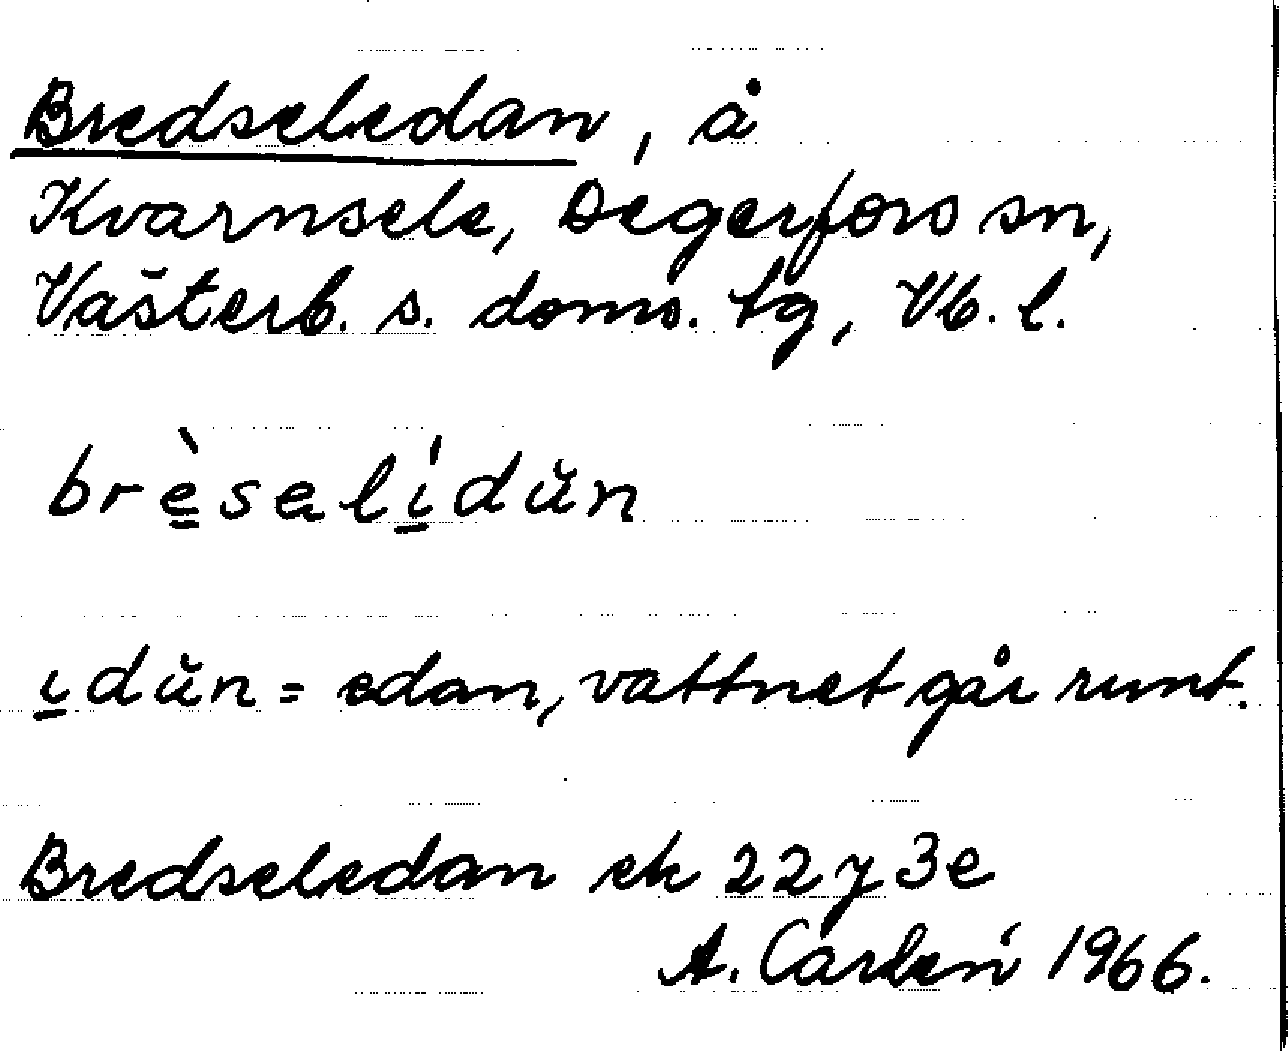 Bredseledan, å
Kvarnsele, Degerfors sn,
Västerb. s. doms. tg, Vb. l.
brè̱salí̱dŭn
i̱dŭn = edan, vattnet går runt.
Bredseledan ek 22 J 3e
A. Carlén 1966.